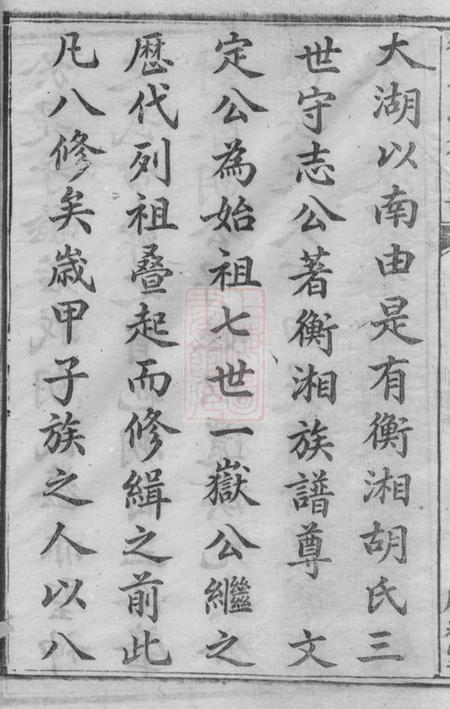 大湖以南由是有衡湘胡氏三
世守志公著衡湘族譜尊　文
定公為始祖七世一嶽公繼之
歷代列祖叠起而修緝之前此
凡八修矣歲甲子族之人以八